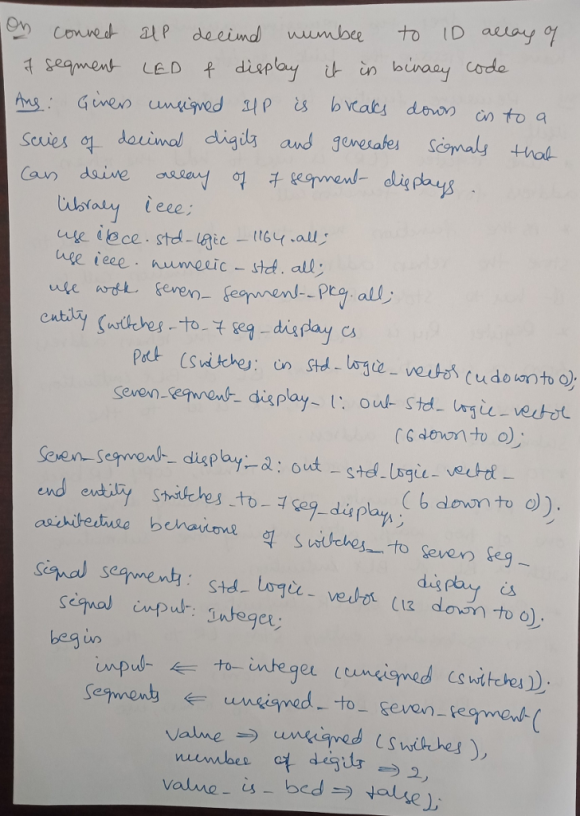 Qn convert I/P decimal number to 1D array of
7 segment LED & display it in binary code
Ans: Given unsigned I/P is breaks down in to a
series of decimal digits and generates signals that
can drive array of 7 segment displays.
library ieee;
use ieee.std-logic-1164.all;
use ieee.numeric-std.all;
use work seven-segment-Pkg.all;
entity switches-to-7seg-display is
Port (switches: in std-logic-vector (4 downto 0);
seven-segment-display-1: out std-logic-vector
(6 down to 0);
seven-segment-display-2: out-std-logic-vector-
(6 down to 0));
end entity switches-to-7seg-display;
architecture behaviour of switches-to seven seg-
display is
signal segments: std-logic-vector (13 down to 0);
signal input: Integer;
begin
input <= to-integer (unsigned (switches));
segments <= unsigned-to-seven-segment(
value => unsigned (switches),
number of digits => 2,
value-is-bcd => false);